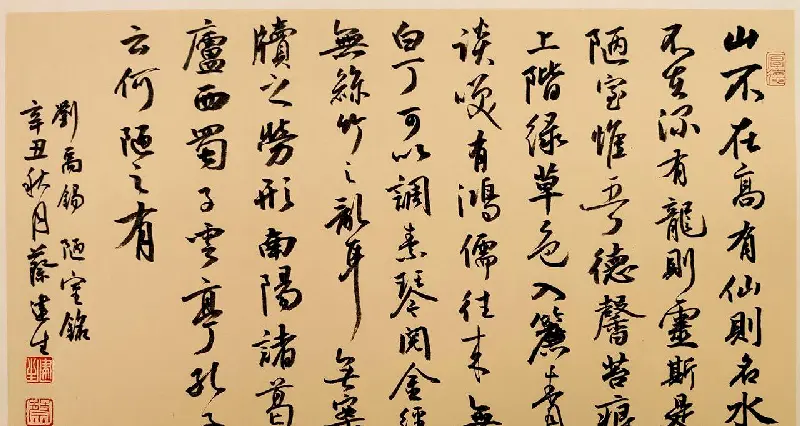 山不在高有仙則名水
不在深有龍則靈斯是
陋室惟吾德馨苔痕
上階緑草色入簾青
談咲有鴻儒往来無
白丁可以調素琴閱金經
無絲竹之亂耳無案
牘之勞形南陽諸葛
廬西蜀子雲亭孔子
云何陋之有
劉禹錫 陋室銘
辛丑秋月蔡建生